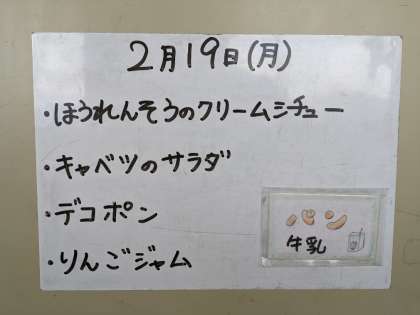 2月19日(月)
・ほうれんそうのクリームシチュー
・キャベツのサラダ
・デコポン
・りんごジャム
パン
牛乳